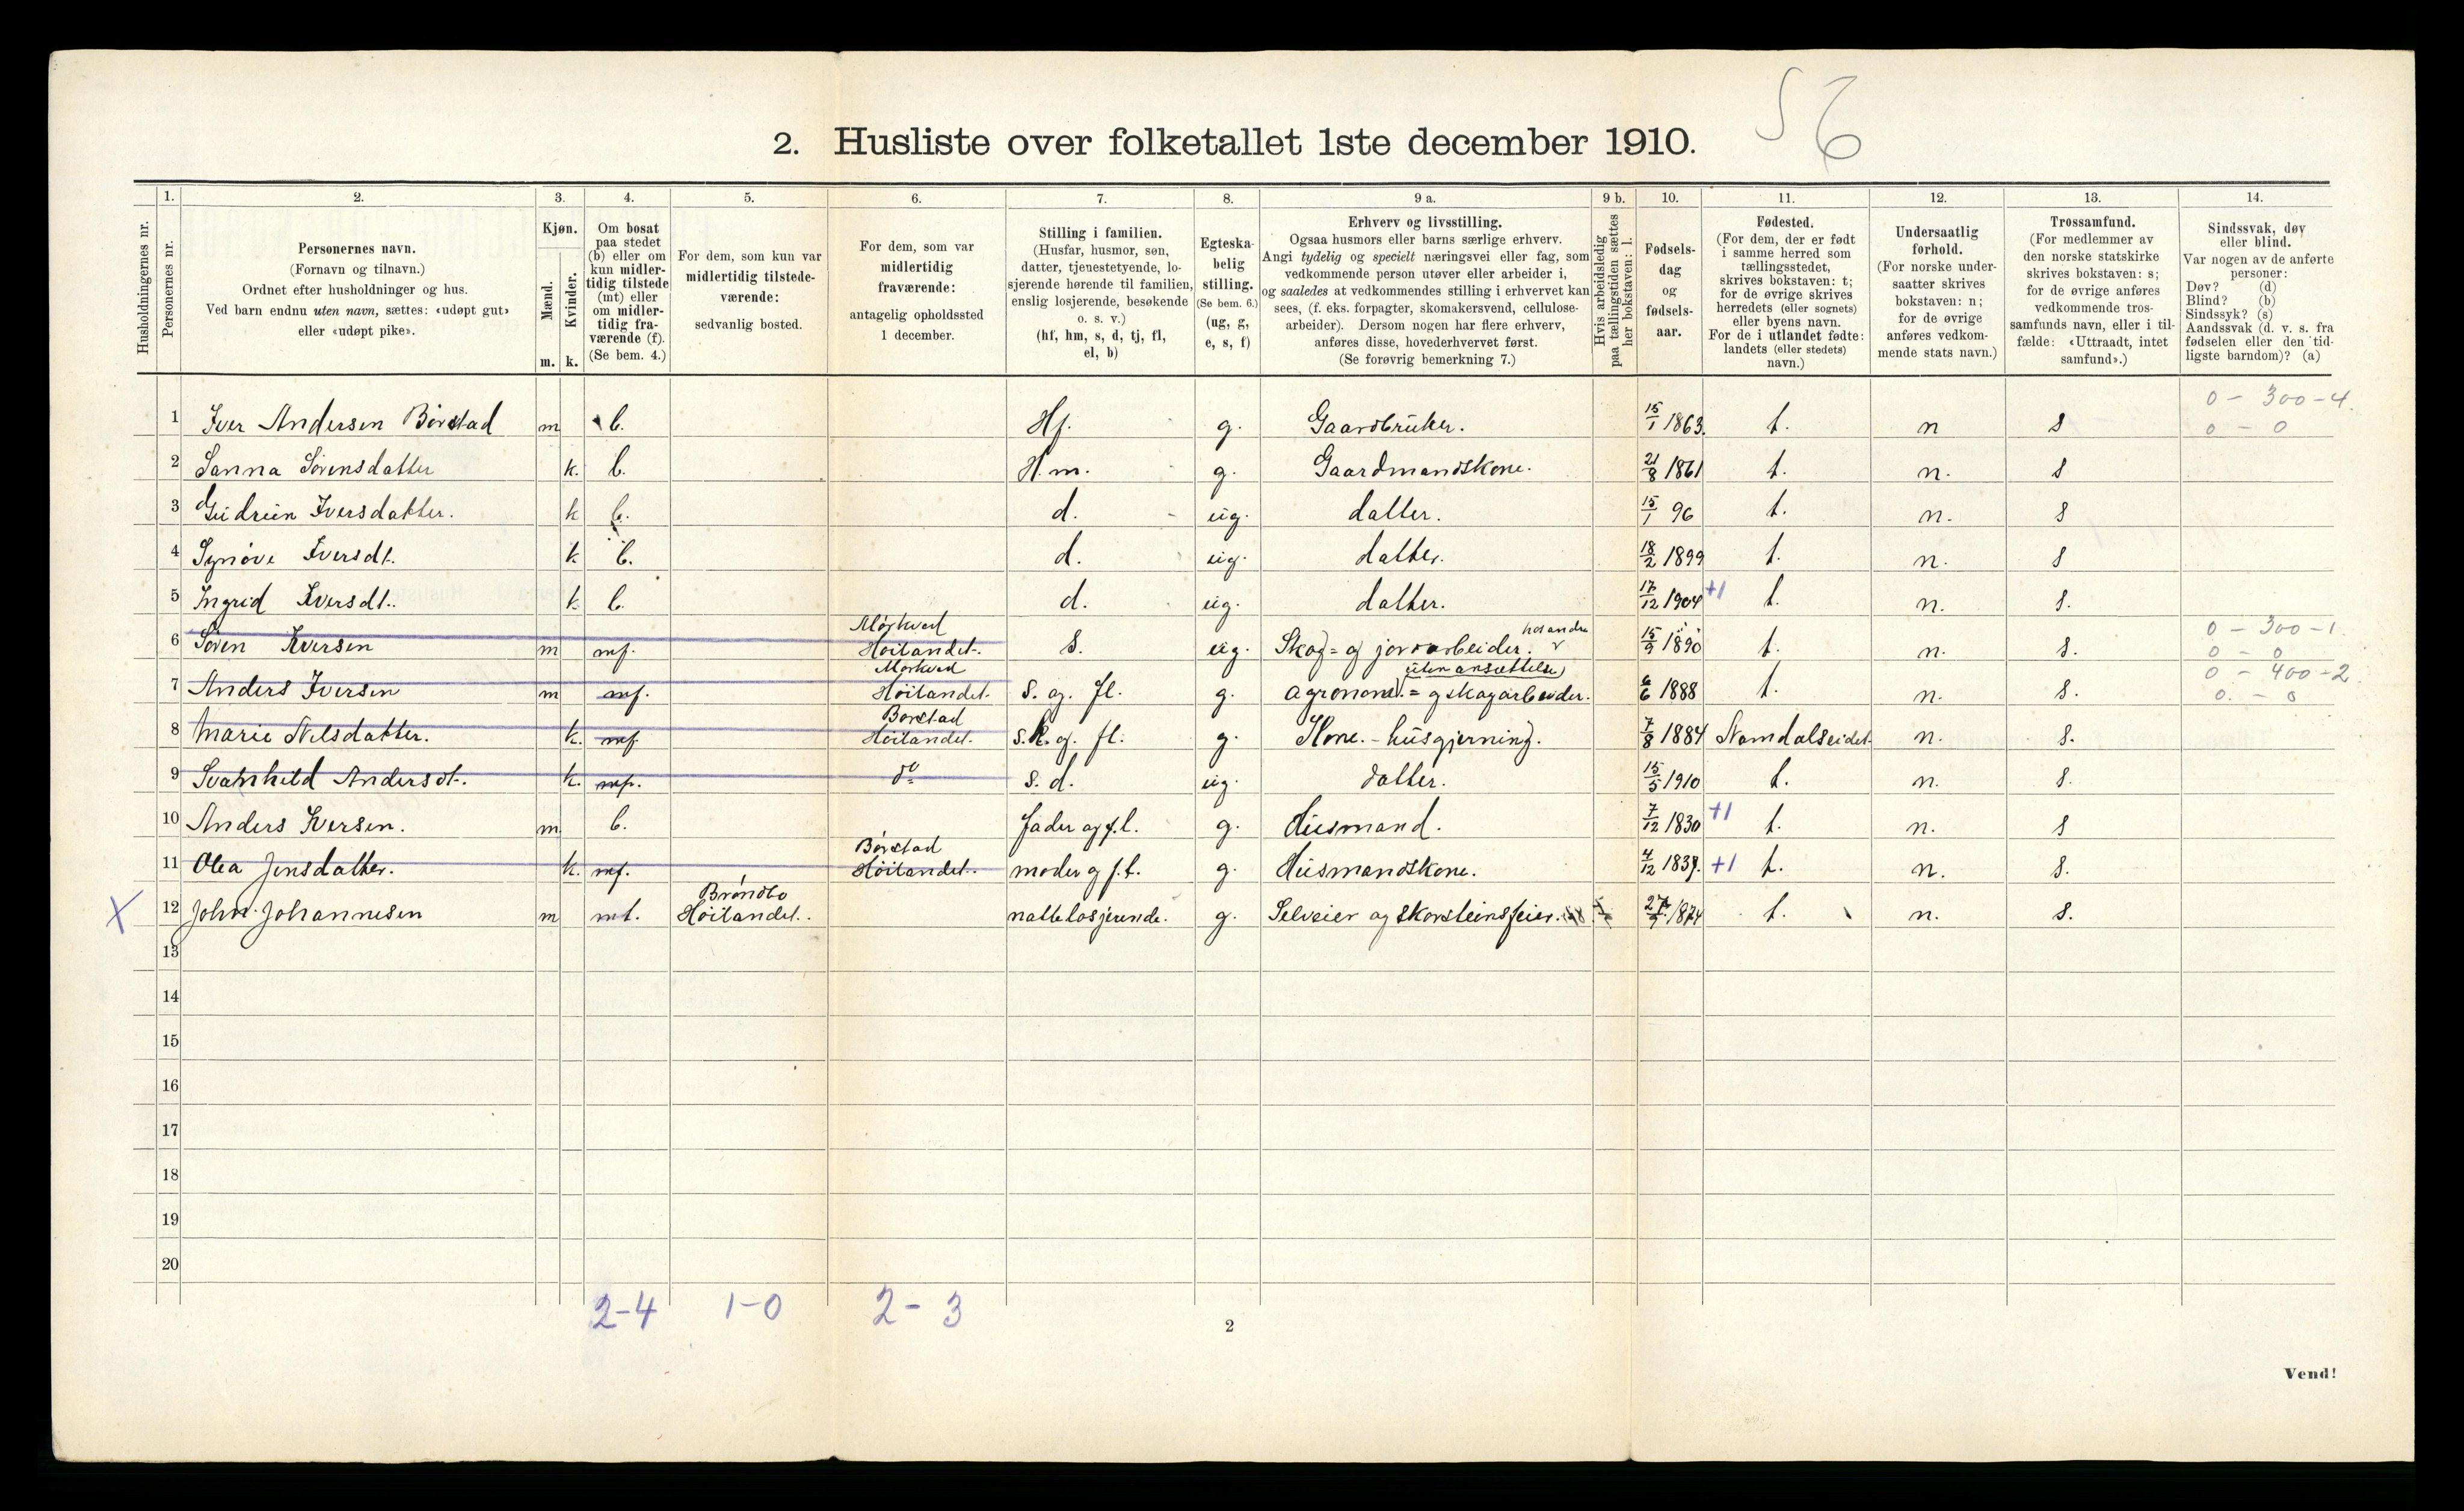 56
2. Husliste over folketallet 1ste december 1910.
Husholdningernes nr.
1.
Personernes nr.
2.
Personernes navn.
(Fornavn og tilnavn.)
Ordnet efter husholdninger og hus.
Ved barn endnu uten navn, sættes: «udøpt gut»
eller «udøpt pike».
3.
Kjøn.
Mænd.
Kvinder.
m. k.
4.
Om bosat
paa stedet
(b) eller om
kun midler-
tidig tilstede
(mt) eller
om midler-
tidig fra-
værende (f).
(Se bem. 4.)
5.
For dem, som kun var
midlertidig tilstede-
værende:
sedvanlig bosted.
6.
For dem, som var
midlertidig
fraværende:
antagelig opholdssted
1 december.
7.
Stilling i familien.
(Husfar, husmor, søn,
datter, tjenestetyende, lo-
sjerende hørende til familien,
enslig losjerende, besøkende
o. s. v.)
(hf, hm, s, d, tj, fl,
el, b)
8.
Egteska-
belig
stilling.
(Se bem. 6.)
(ug, g,
e, s, f)
9 a.
Erhverv og livsstilling.
Ogsaa husmors eller barns særlige erhverv.
Angi tydelig og specielt næringsvei eller fag, som
vedkommende person utøver eller arbeider i,
og saaledes at vedkommendes stilling i erhvervet kan
sees, (f. eks. forpagter, skomakersvend, cellulose-
arbeider). Dersom nogen har flere erhverv,
anføres disse, hovederhvervet først.
(Se forøvrig bemerkning 7.)
9 b.
Hvis arbeidsledig
paa tællingstiden sættes
her bokstaven: l.
10.
Fødsels-
dag
og
fødsels-
aar.
11.
Fødested.
(For dem, der er født
i samme herred som
tællingsstedet,
skrives bokstaven: t;
for de øvrige skrives
herredets (eller sognets)
eller byens navn.
For de i utlandet fødte:
landets (eller stedets)
navn.)
12.
Undersaatlig
forhold.
(For norske under-
saatter skrives
bokstaven: n;
for de øvrige
anføres vedkom-
mende stats navn.)
13.
Trossamfund.
(For medlemmer av
den norske statskirke
skrives bokstaven: s;
for de øvrige anføres
vedkommende tros-
samfunds navn, eller i til-
fælde: «Uttraadt, intet
samfund».)
14.
Sindssvak, døv
eller blind.
Var nogen av de anførte
personer:
Døv? (d)
Blind? (b)
Sindssyk? (s)
Aandssvak (d. v. s. fra
fødselen eller den tid-
ligste barndom)? (a)
0 - 300 - 4.
1 Iver Andersen Börstad m b. Hf. g. Gaardbruker. 15/1 1863. t. n s 0 - 0
2 Sanna Sörensdatter k. b. H.m. g. Gaardmandskone. 21/8 1861 t. n. s
3 Gudrun Iversdatter. k b. d. ug. datter. 15/1 96 t. n. s
4 Synöve Iversdt. k b. d. ug. datter. 18/2 1899 t. n. s
5 Ingrid Iversdt. k b. d. ug. datter. 17/12 1904 +1 t. n. s.
Mörkved hos andre 0 - 300 - 1
6 Sören Iversen m mf. Höilandet. s. ug. Skog= og jordarbeider. 15/9 1890 t. n. s. 0 - 0
Mörkved uten ansættelse) 0 - 400 - 2.
7 Anders Iversen m mf. Höilandet. s. og. fl. g. agronom). = og skogarbeider. 6/6 1888 t. n. s. 0. - 0
Borstad
8 Marie Nilsdatter. k. mf Höilandet. s.k. og. fl. g. Kone. - husgjerning. 7/8 1884 Namdalseidet n. s.
9 Svanhild Andersdt. k. mf. do s. d. ug. datter. 15/5 1910 t. n. s.
10 Anders Iversen. m b. fader og f.l. g. Husmand. 7/12 1830 +1 t. n. s
Börstad
11 Olea Jensdatter. k. mf. Höilandet. moder og f.l. g. Husmandskone. 4/12 1837. +1 t. n. s.
Bröndbo
X 12 John Johannesen m mt. Höilandet. nattelosjerende. g. Selveier og skorsteinsfeier. 27/7 1874 t. n. s.
13
14
15
16
17
18
19
20
2-4 1-0 2-3
2
Vend!